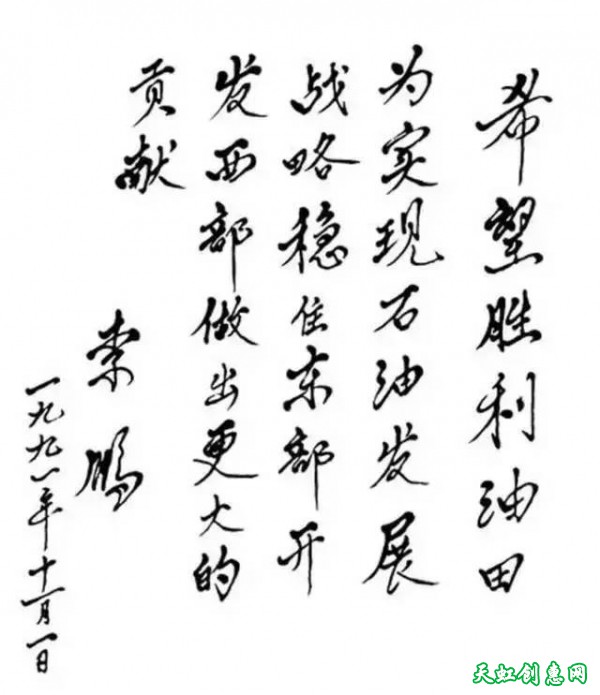 希望胜利油田
为实现石油发展
战略稳住东部开
发西部做出更大的
贡献
李鹏
一九九一年十一月一日
天虹创惠网